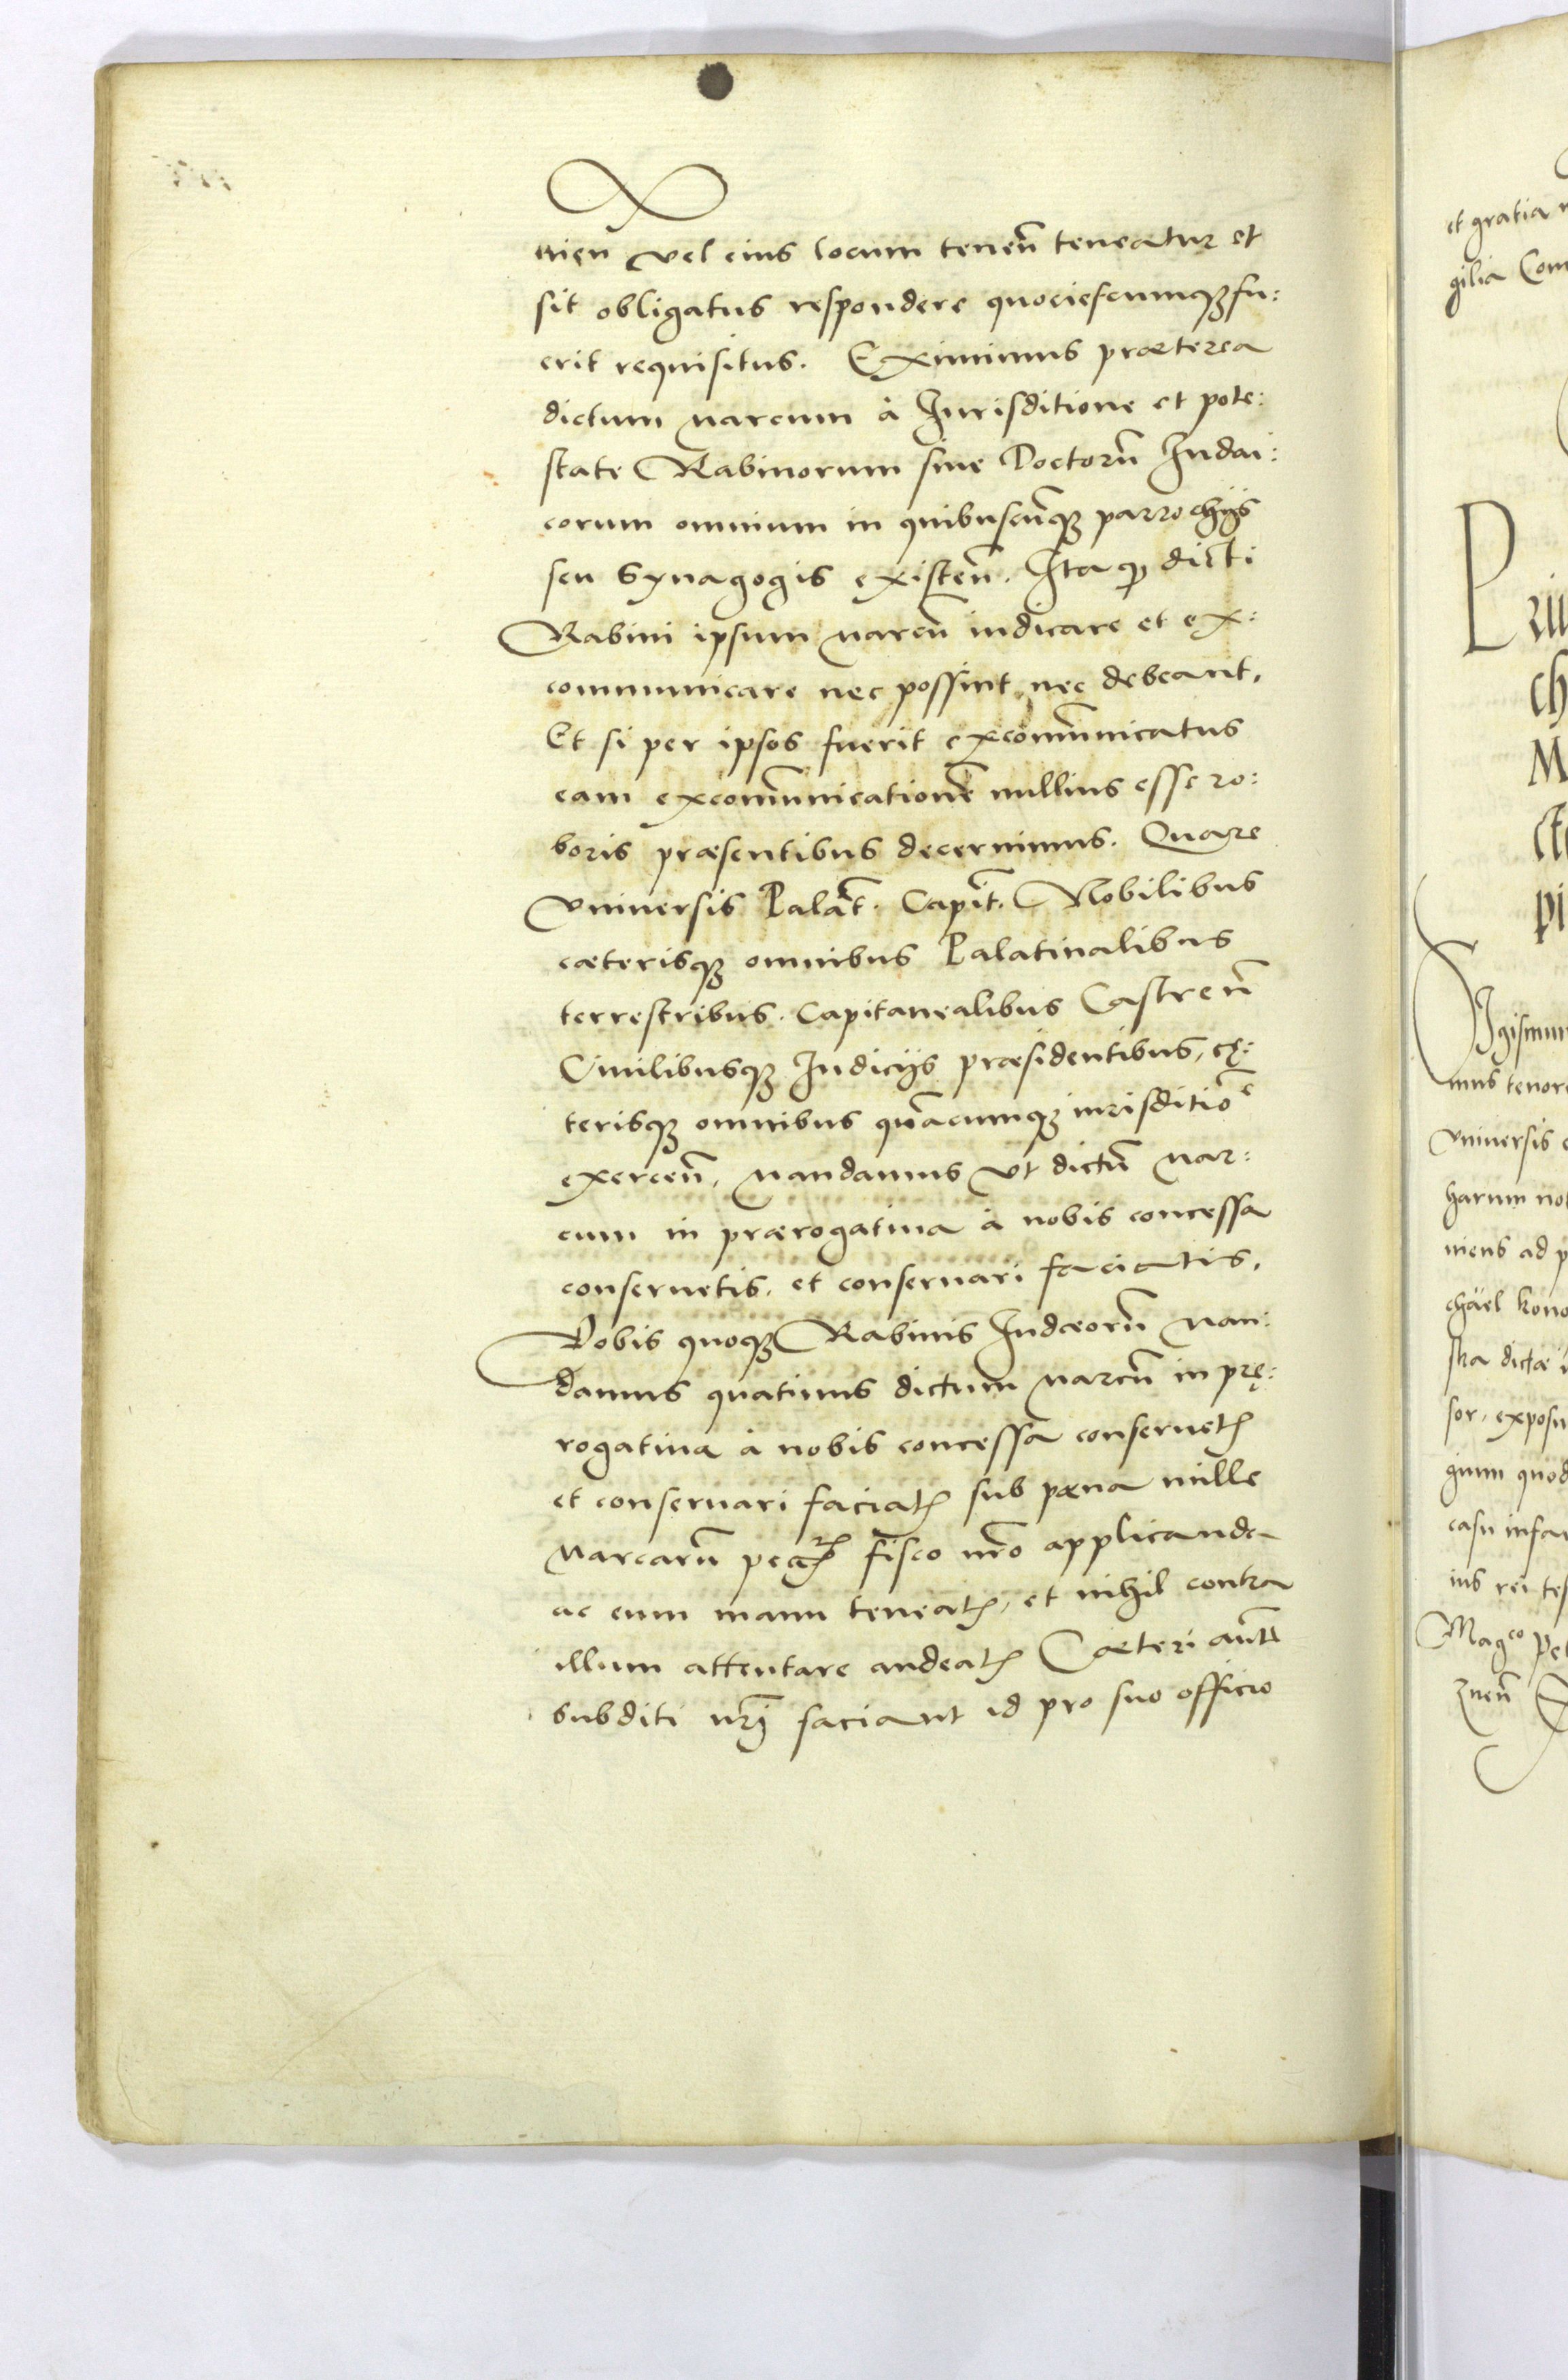 nien vel eius locum tenen̄ teneatur et
sit obligatus respondere quociescumqꝫ fu:
erit requisitus. Eximimus præterea
dictum Marcum à Jurisditione et pote:
state Rabinorum siue Doctorū Judai:
corum omnium in quibuscūqꝫ parrochijs
seu Synagogis existen̄. Ita ꝙ dicti
Rabini ipsum Marcū iudicare et ex:
communicare nec possint nec debeant,
Et si per ipsos fuerit excom̄unicatus
eam excom̄unicationē nullius esse ro:
boris præsentibus decernimus. Quare
Vniuersis Palat̄. Capit̄. Nobilibus
cæterisqꝫ omnibus Palatinalibus
terrestribus. Capitanealibus Castren̄
Ciuilibusqꝫ Judicijs præsidentibus, cę:
terisqꝫ omnibus quācumqꝫ iurisditiōe
exercen̄, Mandamus vt dictū Mar:
cum in prærogatiua à nobis concessa
conseruetis, et conseruari faciatis,
Vobis quoqꝫ Rabinis Judæorū Man:
damus quatinus dictum Marcū in prę:
rogatiua à nobis concessa conseruetꝭ
et conseruari faciatꝭ sub pæna mille
Marcarū fisco nr̄o applicanda
ac eum manu teneatꝭ, et nihil contra
illum attentare audeatꝭ Cæteri aūt
subditi nrī faciant id pro suo officio
et gratia
gilia Com
Pri
ch
M
ct
pi
Sigismun
mus tenore
Vniuersis
harum not
niens ad p
chäel Kono
stra dictæ
sor, exposu
gium quod
casu infa
ius rei tes
Mag^co Pet
znen̄